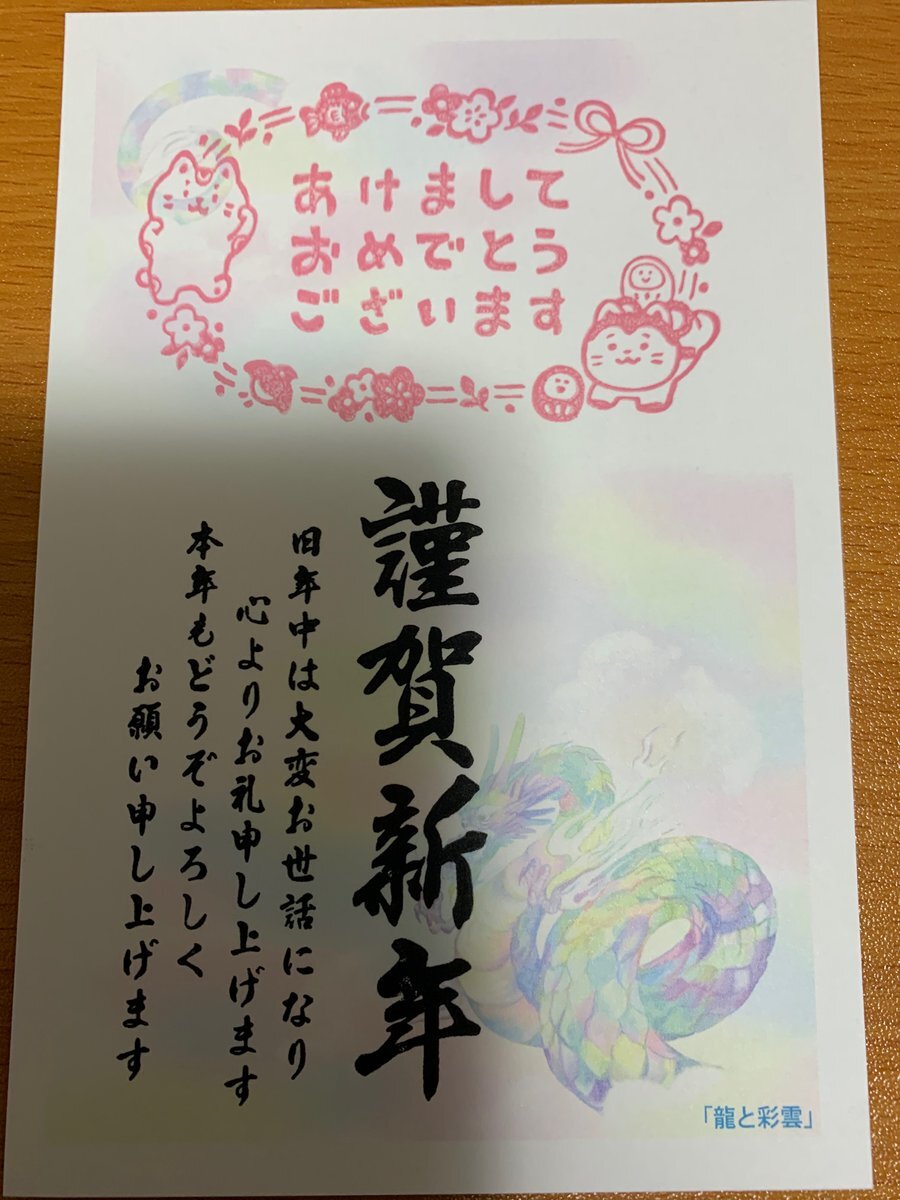 あけまして
おめでとう
ございます
謹賀新年
旧年中は大変お世話になり
心よりお礼申し上げます
本年もどうぞよろしく
お願い申し上げます
「龍と彩雲」